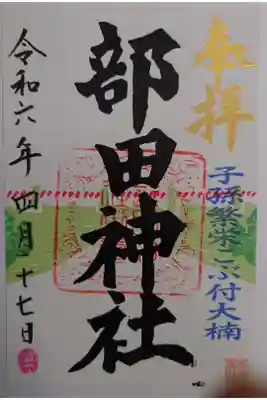 奉拝
子孫繁栄こぶ付大楠
部田神社
令和六年四月十七日